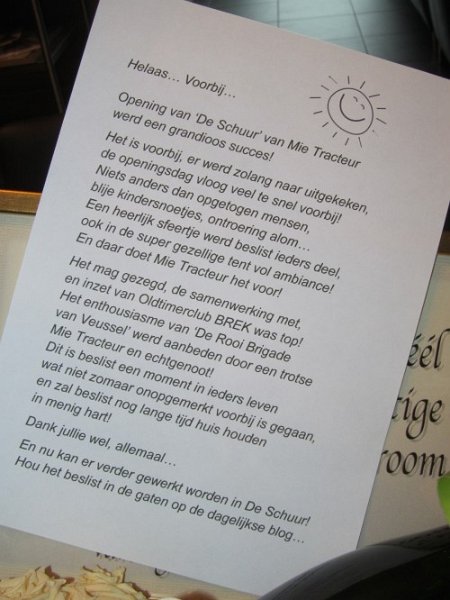 Helaas… Voorbij…
Opening van 'De Schuur' van Mie Tracteur
werd een grandioos succes!
Het is voorbij, er werd zolang naar uitgekeken,
de openingsdag vloog veel te snel voorbij!
Niets anders dan opgetogen mensen,
blije kindersnoetjes, ontroering alom…
Een heerlijk sfeertje werd beslist ieders deel,
ook in de super gezellige tent vol ambiance!
En daar doet Mie Tracteur het voor!
Het mag gezegd, de samenwerking met,
en inzet van Oldtimerclub BREK was top!
Het enthousiasme van 'De Rooi Brigade
van Veussel' werd aanbeden door een trotse
Mie Tracteur en echtgenoot!
Dit is beslist een moment in ieders leven
wat niet zomaar onopgemerkt voorbij is gegaan,
en zal beslist nog lange tijd huis houden
in menig hart!
Dank jullie wel, allemaal…
En nu kan er verder gewerkt worden in De Schuur!
Hou het beslist in de gaten op de dagelijkse blog…
éél
tige
room